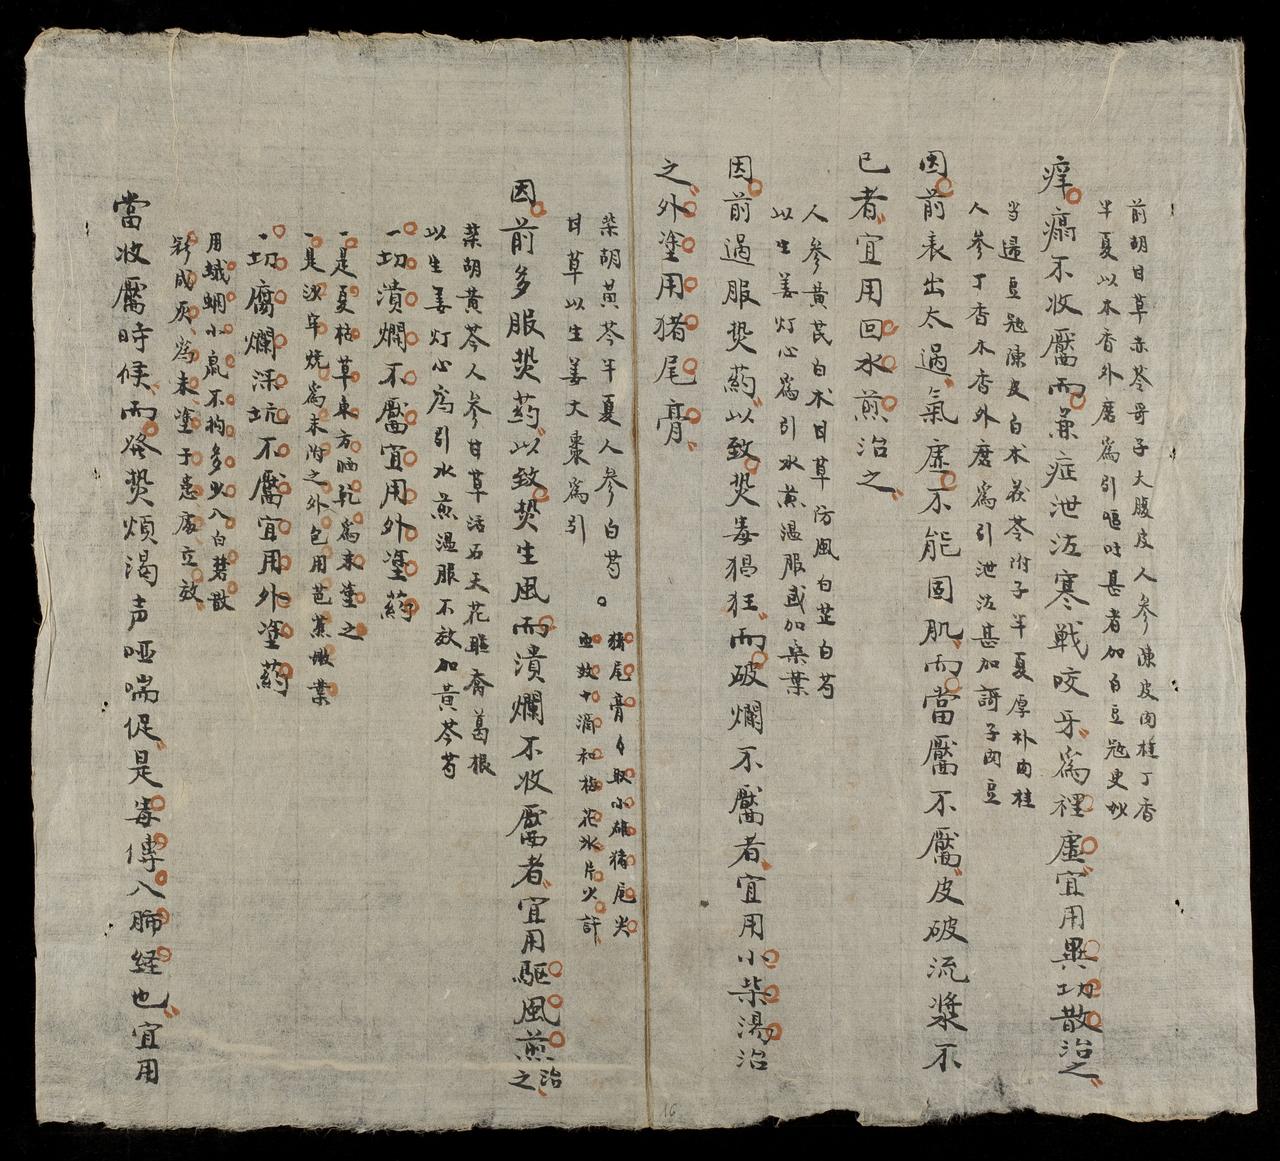 前胡甘草赤苓哥子大腹皮人參陳皮肉桂丁香
半夏以木香外磨為引嘔吐甚者加白豆冦更妙
痒癘不收靨而兼症泄泻寒戰咬牙為裡虛宜用異功散治之
当歸豆冦陳皮白朮茯苓附子半夏厚朴肉桂
人參丁香木香外磨為引泄泻甚加訶子肉豆
因前表出太過氣虛不能固肌而當靨不靨皮破流漿不
已者宜用回水煎治之
人參黃芪白朮甘草防風白芷白芍
以生姜灯心為引水煎温服或加桑葉
因前過服焚药以致焚毒猖狂而破爛不靨者宜用小柴湯治
之外塗用猪尾膏
柴胡黃芩半夏人參白芍
甘草以生姜大棗為引
猪尾膏々取小雄猪尾尖
血数十滴和梅花氷片火許
因前多服焚药以致焚生風而潰爛不收靨者宜用驅風煎治之
柴胡黃芩人參甘草活石天花連喬葛根
以生姜灯心為引水煎温服不效加黃芩芍
一切潰爛不靨宜用外塗药
一是夏枯草東方晒乾為末塗之
一是沙牢燒為末附之外包用芭蕉嫩葉
一切腐爛深坑不靨宜用外塗药
用蛾蜩小鼠不拘多少入白礬散
彩成灰為末塗于患處立效
當收靨時候而發焚煩渴声啞喘促是毒傳入肺経也宜用
16